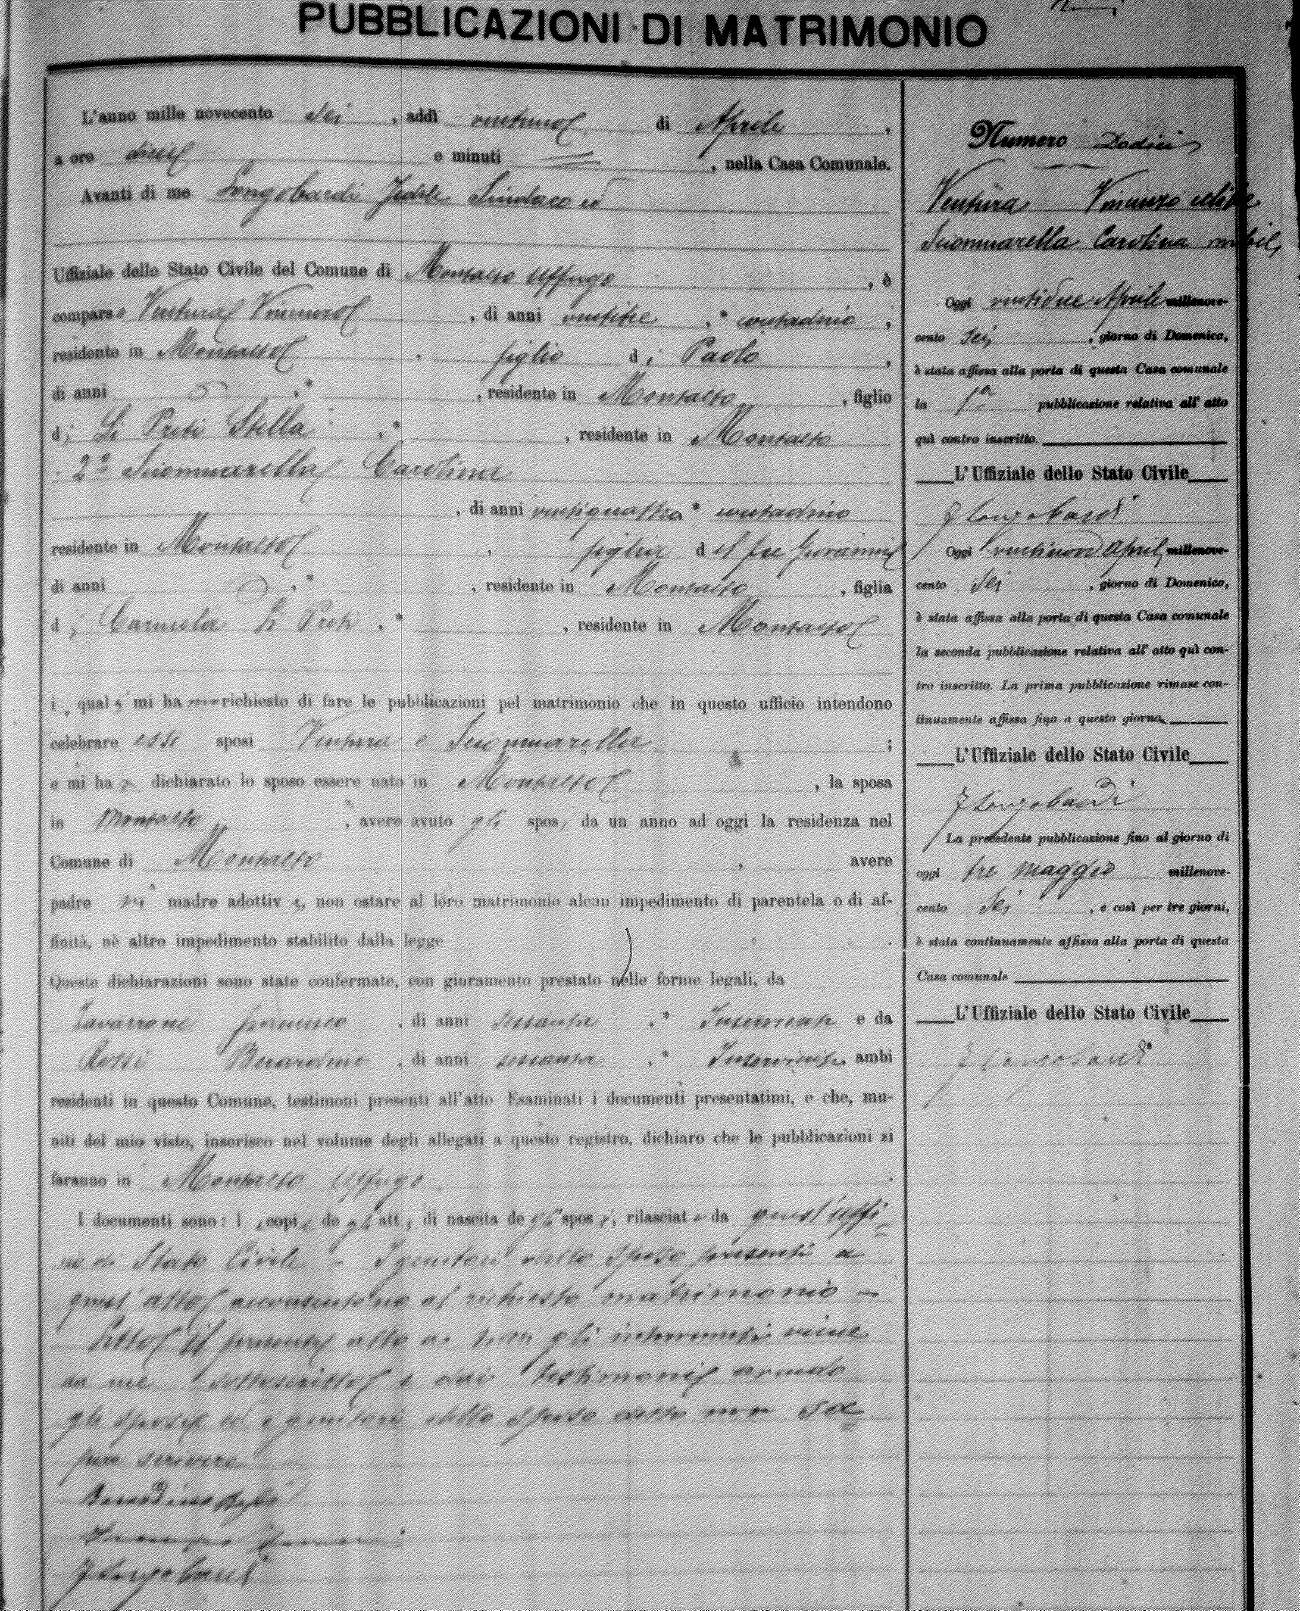 PUBBLICAZIONI DI MATRIMONIO
L'anno mille novecento sei, addì ventuno di Aprile,
a ore dieci e minuti , nella Casa Comunale.
Avanti di me Longobardi Fedele Sindaco ed
Uffiziale dello Stato Civile del Comune di Montalto Uffugo, è
comparso Ventura Vincenzo, di anni ventitre, contadino,
residente in Montalto, figlio di Paolo,
di anni , residente in Montalto, figlio
di Li Preti Stella, residente in Montalto
2° Sciommarella Carolina
, di anni ventiquattro contadina
residente in Montalto, figlia del fu Giovanni
di anni , residente in Montalto, figlia
di Carmela Li Preti, residente in Montalto
i quali mi hanno richiesto di fare le pubblicazioni pel matrimonio che in questo ufficio intendono
celebrare essi sposi Ventura e Sciommarella;
e mi ha dichiarato lo sposo essere nato in Montalto, la sposa
in Montalto, avere avuto gli sposi da un anno ad oggi la residenza nel
Comune di Montalto, avere
padre madre adottivi, non ostare al loro matrimonio alcun impedimento di parentela o di af-
finità, nè altro impedimento stabilito dalla legge.
Queste dichiarazioni sono state confermate, con giuramento prestato nelle forme legali, da
Francesco, di anni sessanta, Inserviente e da
Rossi Berardino, di anni sessanta, Inserviente, ambi
residenti in questo Comune, testimoni presenti all'atto Esaminati i documenti presentatimi, e che, mu-
niti del mio visto, inserisco nel volume degli allegati a questo registro, dichiaro che le pubblicazioni si
faranno in Montalto Uffugo.
I documenti sono: le copie degli atti di nascita degli sposi, rilasciate da quest'uffi-
cio di Stato Civile - I genitori dello sposo presenti a
quest'atto acconsentono al richiesto matrimonio -
Letto il presente atto a tutti gli intervenuti viene
da me sottoscritto e dai testimoni avendo
gli sposi ed i genitori dello sposo detto non sa-
per scrivere
Berardino Rossi
F Longobardi
Numero Dodici
Ventura Vincenzo celibe
Sciommarella Carolina nubile
Oggi ventidue Aprile millenove-
cento sei, giorno di Domenica,
è stata affissa alla porta di questa Casa comunale
la 1ª pubblicazione relativa all'atto
quì contro inscritto.
L'Uffiziale dello Stato Civile
F Longobardi
Oggi ventinove Aprile millenove-
cento sei, giorno di Domenica,
è stata affissa alla porta di questa Casa comunale
la seconda pubblicazione relativa all'atto quì con-
tro inscritto. La prima pubblicazione rimase con-
tinuamente affissa fino a questo giorno.
L'Uffiziale dello Stato Civile
F Longobardi
La precedente pubblicazione fino al giorno di
oggi tre maggio millenove-
cento sei, e così per tre giorni,
è stata continuamente affissa alla porta di questa
Casa comunale
L'Uffiziale dello Stato Civile
F Longobardi